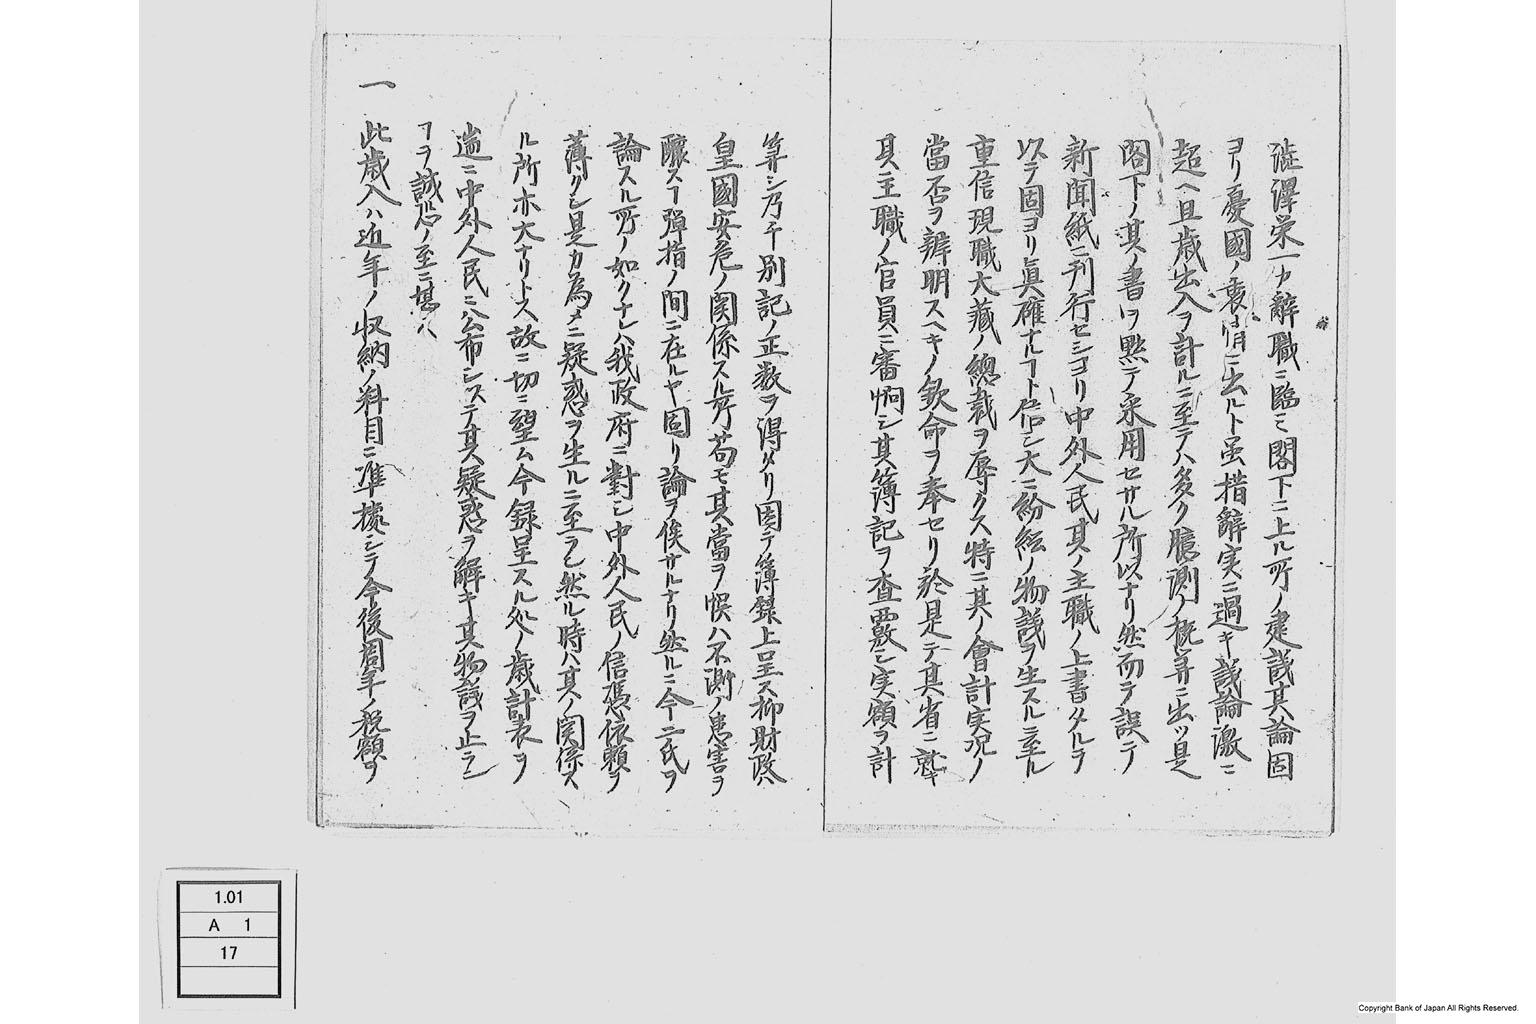 澁澤栄一カ辭職ニ臨ミ閣下ニ上ル所ノ建議其論固
ヨリ憂國ノ衷情ニ出ルト虽措辭実ニ過キ議論激ニ
超ヘ且歳出入ヲ計ルニ至テハ多ク臆測ノ概算ニ出ツ是
閣下ノ其ノ書ヲ黙テ采用セサル所以ナリ然而テ誤テ
新聞紙ニ刋行セシヨリ中外人民其ノ主職ノ上書タルヲ
以テ固ヨリ眞確ナルヿト信シ大ニ紛紜ノ物議ヲ生スルニ至ル
重信現職大藏ノ總裁ヲ辱クス特ニ其ノ會計実况ノ
當否ヲ辨明スヘキノ欽命ヲ奉セリ於是テ其省ニ就キ
其主職ノ官員ニ審恫シ其簿記ヲ査覈シ実額ヲ計
算シ乃チ別記ノ正数ヲ得タリ因テ簿録上呈ス抑財政ハ
皇國安危ノ関係スル所苟モ其當ヲ悞ハ不測ノ患害ヲ
釀スヿ彈指ノ間ニ在ルヤ固リ論ヲ俟サルナリ然ルニ今二氏ヲ
論スル所ノ如クナレハ我政府ニ對シ中外人民ノ信憑依頼ヲ
薄クシ是カ為メニ疑惑ヲ生ルニ至ラン然ル時ハ其ノ関係ス
ル所亦大ナリトス故ニ切ニ望ム今録呈スル処ノ歳計表ヲ
遄ニ中外人民ニ公布システ其疑惑ヲ解キ其物議ヲ止ラン
ヿヲ誠忩ノ至ニ堪ハ
一 此歳入ハ近年ノ収納ノ料目ニ準據シテ今後周年ノ税額ヲ
1.01
A 1
17
Copyright Bank of Japan All Rights Reserved.